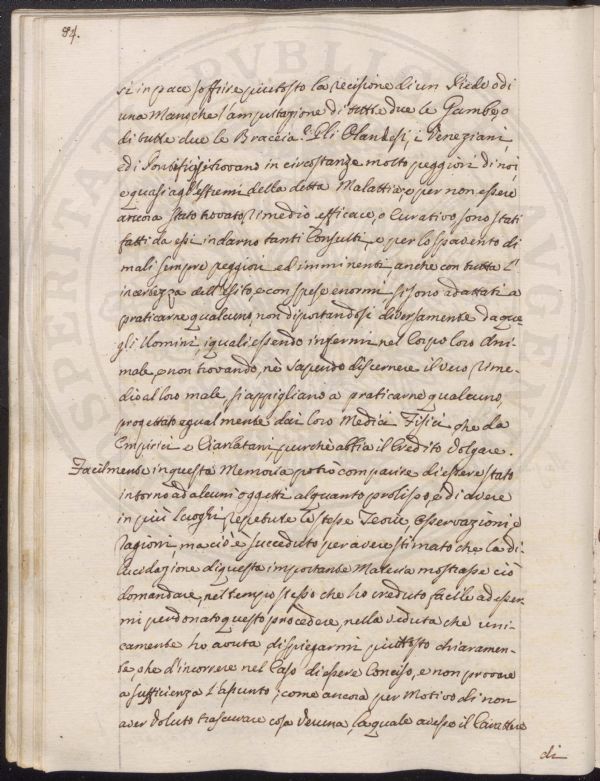 84.
si in pace soffrire piuttosto la recisione di un Piede o di
una Mano, che l'amputazione di tutte due le Gambe, o
di tutte due le Braccia. Gli Olandesi, i Veneziani,
ed i Pontifici si trovano in circostanze molto peggiori di noi
e quasi agl'estremi della detta Malattia, e per non essere
ancora stato trovato rimedio efficace, o curativo sono stati
fatti da essi indarno tanti Consulti, e per lo spavento di
mali sempre peggiori ed imminenti, anche con tutta l'
incertezza dell'esito, e con spese enormi si sono adattati a
praticarne qualcuno, non diportandosi diversamente da que-
gli Uomini, i quali essendo infermi nel Corpo loro Ani-
male, e non trovando, nè sapendo discernere il vero rime-
dio al loro male, si appigliano a praticarne qualcuno,
progettato egualmente dai loro Medici Fisici, che da
Empirici e Ciarlatani purchè abbia il Credito volgare.
Facilmente in questa Memoria potrò comparire di essere stato
intorno ad alcuni oggetti alquanto prolisso, e di avere
in più luoghi repetute le stesse Teorie Osservazioni, e
ragioni, ma ciò è succeduto per avere stimato che la di-
lucidazione di questa importante Materia mostrasse ciò
domandare, nel tempo stesso che ho creduto facile ad esser-
mi perdonato questo procedere, nella veduta che uni-
camente ho avuta di spiegarmi piuttosto chiaramen-
te, che d'incorrere nel Caso di essere Conciso, e non provare
a sufficienza l'assunto, come ancora per Motivo di non
aver voluto trascurare cosa veruna, la quale avesse il Carattere
di